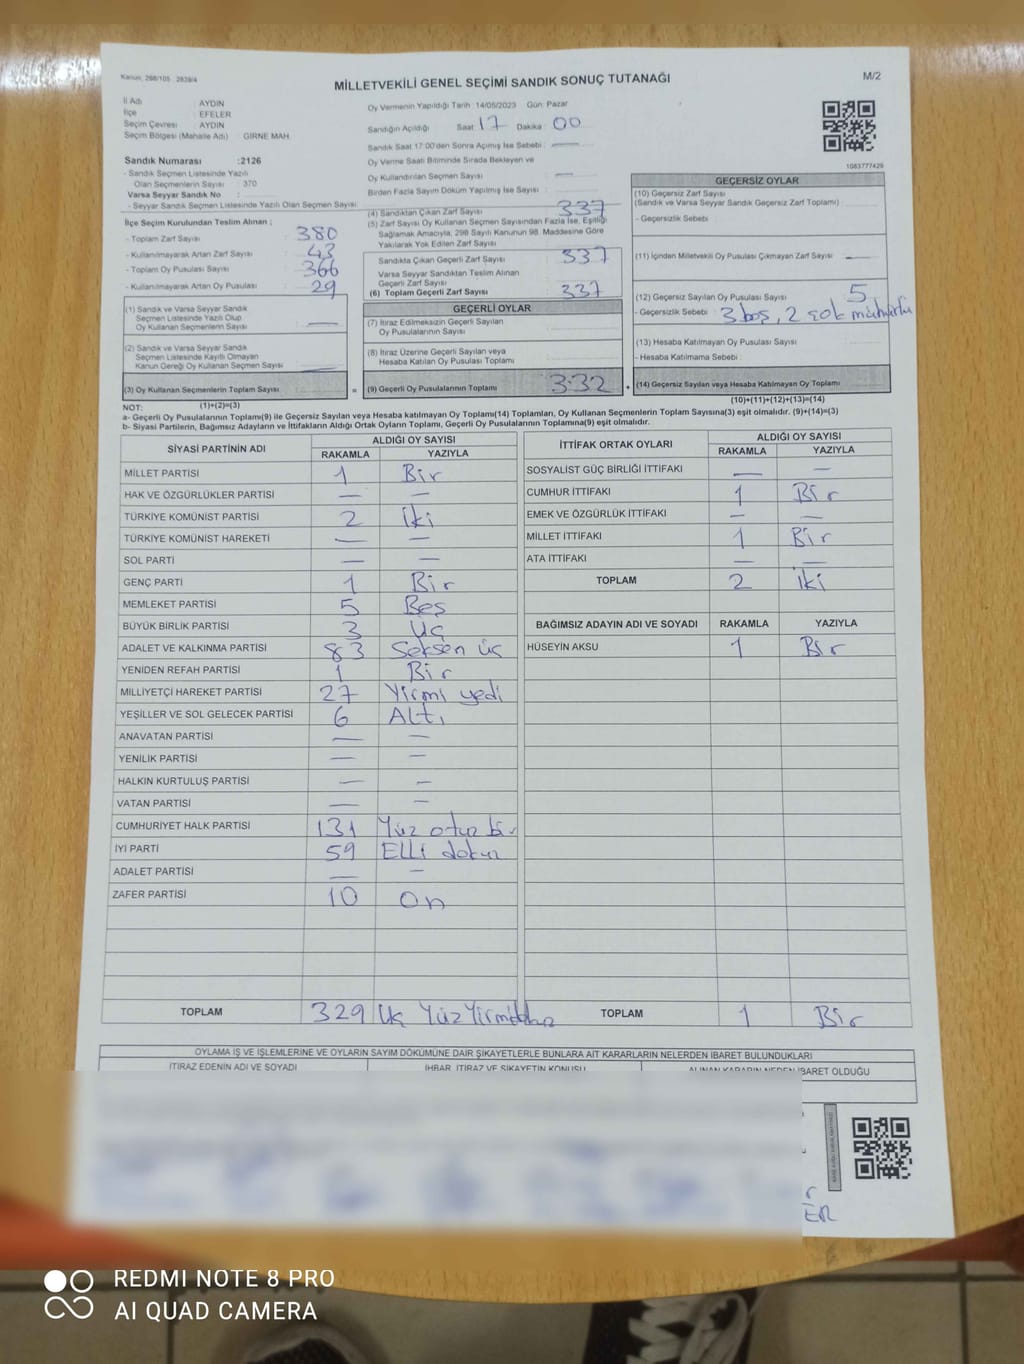 Kanun: 298/105 2839/4
MİLLETVEKİLİ GENEL SEÇİMİ SANDIK SONUÇ TUTANAĞI
M/2
İl Adı : AYDIN
İlçe : EFELER
Seçim Çevresi : AYDIN
Seçim Bölgesi (Mahalle Adı) : GİRNE MAH.
Sandık Numarası :2126
- Sandık Seçmen Listesinde Yazılı
Olan Seçmenlerin Sayısı : 370
Varsa Seyyar Sandık No :
- Seyyar Sandık Listesinde Yazılı Olan Seçmen Sayısı:
Oy Vermenin Yapıldığı Tarih :14/05/2023 Gün: Pazar
Sandığın Açıldığı Saat 17 Dakika : 00
Sandık Saat 17:00'den Sonra Açılmış İse Sebebi : —
Oy Verme Saati Bitiminde Sırada Bekleyen ve
Oy Kullandırılan Seçmen Sayısı : —
Birden Fazla Sayım Döküm Yapılmış İse Sayısı :
1083777429
İlçe Seçim Kurulundan Teslim Alınan ;
- Toplam Zarf Sayısı : 380
- Kullanılmayarak Artan Zarf Sayısı : 43
- Toplam Oy Pusulası Sayısı : 366
- Kullanılmayarak Artan Oy Pusulası : 29
(1) Sandık ve Varsa Seyyar Sandık
Seçmen Listesinde Yazılı Olup
Oy Kullanan Seçmenlerin Sayısı : —
(2) Sandık ve Varsa Seyyar Sandık
Seçmen Listesinde Kayıtlı Olmayan
Kanun Gereği Oy Kullanan Seçmen Sayısı : —
(3) Oy Kullanan Seçmenlerin Toplam Sayısı :
(1)+(2)=(3)
(4) Sandıktan Çıkan Zarf Sayısı : 337
(5) Zarf Sayısı Oy Kullanan Seçmen Sayısından Fazla İse, Eşitliği
Sağlamak Amacıyla, 298 Sayılı Kanunun 98. Maddesine Göre
Yakılarak Yok Edilen Zarf Sayısı :
Sandıkta Çıkan Geçerli Zarf Sayısı : 337
Varsa Seyyar Sandıktan Teslim Alınan
Geçerli Zarf Sayısı :
(6) Toplam Geçerli Zarf Sayısı : 337
GEÇERLİ OYLAR
(7) İtiraz Edilmeksizin Geçerli Sayılan
Oy Pusulalarının Sayısı :
(8) İtiraz Üzerine Geçerli Sayılan veya
Hesaba Katılan Oy Pusulası Toplamı :
= (9) Geçerli Oy Pusulalarının Toplamı : 332
GEÇERSİZ OYLAR
(10) Geçersiz Zarf Sayısı
(Sandık ve Varsa Seyyar Sandık Geçersiz Zarf Toplamı) :
- Geçersizlik Sebebi :
(11) İçinden Milletvekili Oy Pusulası Çıkmayan Zarf Sayısı : —
(12) Geçersiz Sayılan Oy Pusulası Sayısı : 5
- Geçersizlik Sebebi : 3 boş, 2 çok mühürlü
(13) Hesaba Katılmayan Oy Pusulası Sayısı :
- Hesaba Katılmama Sebebi :
+ (14) Geçersiz Sayılan veya Hesaba Katılmayan Oy Toplamı :
(10)+(11)+(12)+(13)=(14)
NOT:
a- Geçerli Oy Pusulalarının Toplamı(9) ile Geçersiz Sayılan veya Hesaba katılmayan Oy Toplamı(14) Toplamları, Oy Kullanan Seçmenlerin Toplam Sayısına(3) eşit olmalıdır. (9)+(14)=(3)
b- Siyasi Partilerin, Bağımsız Adayların ve İttifakların Aldığı Ortak Oyların Toplamı, Geçerli Oy Pusulalarının Toplamına(9) eşit olmalıdır.
SİYASİ PARTİNİN ADI ALDIĞI OY SAYISI
RAKAMLA YAZIYLA
MİLLET PARTİSİ 1 Bir
HAK VE ÖZGÜRLÜKLER PARTİSİ — —
TÜRKİYE KOMÜNİST PARTİSİ 2 iki
TÜRKİYE KOMÜNİST HAREKETİ — —
SOL PARTİ — —
GENÇ PARTİ 1 Bir
MEMLEKET PARTİSİ 5 Beş
BÜYÜK BİRLİK PARTİSİ 3 Üç
ADALET VE KALKINMA PARTİSİ 83 Seksen üç
YENİDEN REFAH PARTİSİ 1 Bir
MİLLİYETÇİ HAREKET PARTİSİ 27 Yirmi yedi
YEŞİLLER VE SOL GELECEK PARTİSİ 6 Altı
ANAVATAN PARTİSİ — —
YENİLİK PARTİSİ — —
HALKIN KURTULUŞ PARTİSİ — —
VATAN PARTİSİ — —
CUMHURİYET HALK PARTİSİ 131 Yüz otuz bir
İYİ PARTİ 59 Elli dokuz
ADALET PARTİSİ — —
ZAFER PARTİSİ 10 on
TOPLAM 329 Üç Yüz Yirmi dokuz
İTTİFAK ORTAK OYLARI ALDIĞI OY SAYISI
RAKAMLA YAZIYLA
SOSYALİST GÜÇ BİRLİĞİ İTTİFAKI — —
CUMHUR İTTİFAKI 1 Bir
EMEK VE ÖZGÜRLÜK İTTİFAKI — —
MİLLET İTTİFAKI 1 Bir
ATA İTTİFAKI — —
TOPLAM 2 iki
BAĞIMSIZ ADAYIN ADI VE SOYADI RAKAMLA YAZIYLA
HÜSEYİN AKSU 1 Bir
TOPLAM 1 Bir
OYLAMA İŞ VE İŞLEMLERİNE VE OYLARIN SAYIM DÖKÜMÜNE DAİR ŞİKAYETLERLE BUNLARA AİT KARARLARIN NELERDEN İBARET BULUNDUKLARI
İTİRAZ EDENİN ADI VE SOYADI İHBAR, İTİRAZ VE ŞİKAYETİN KONUSU ALINAN KARARIN NEDEN İBARET OLDUĞU
ER
REDMI NOTE 8 PRO
AI QUAD CAMERA